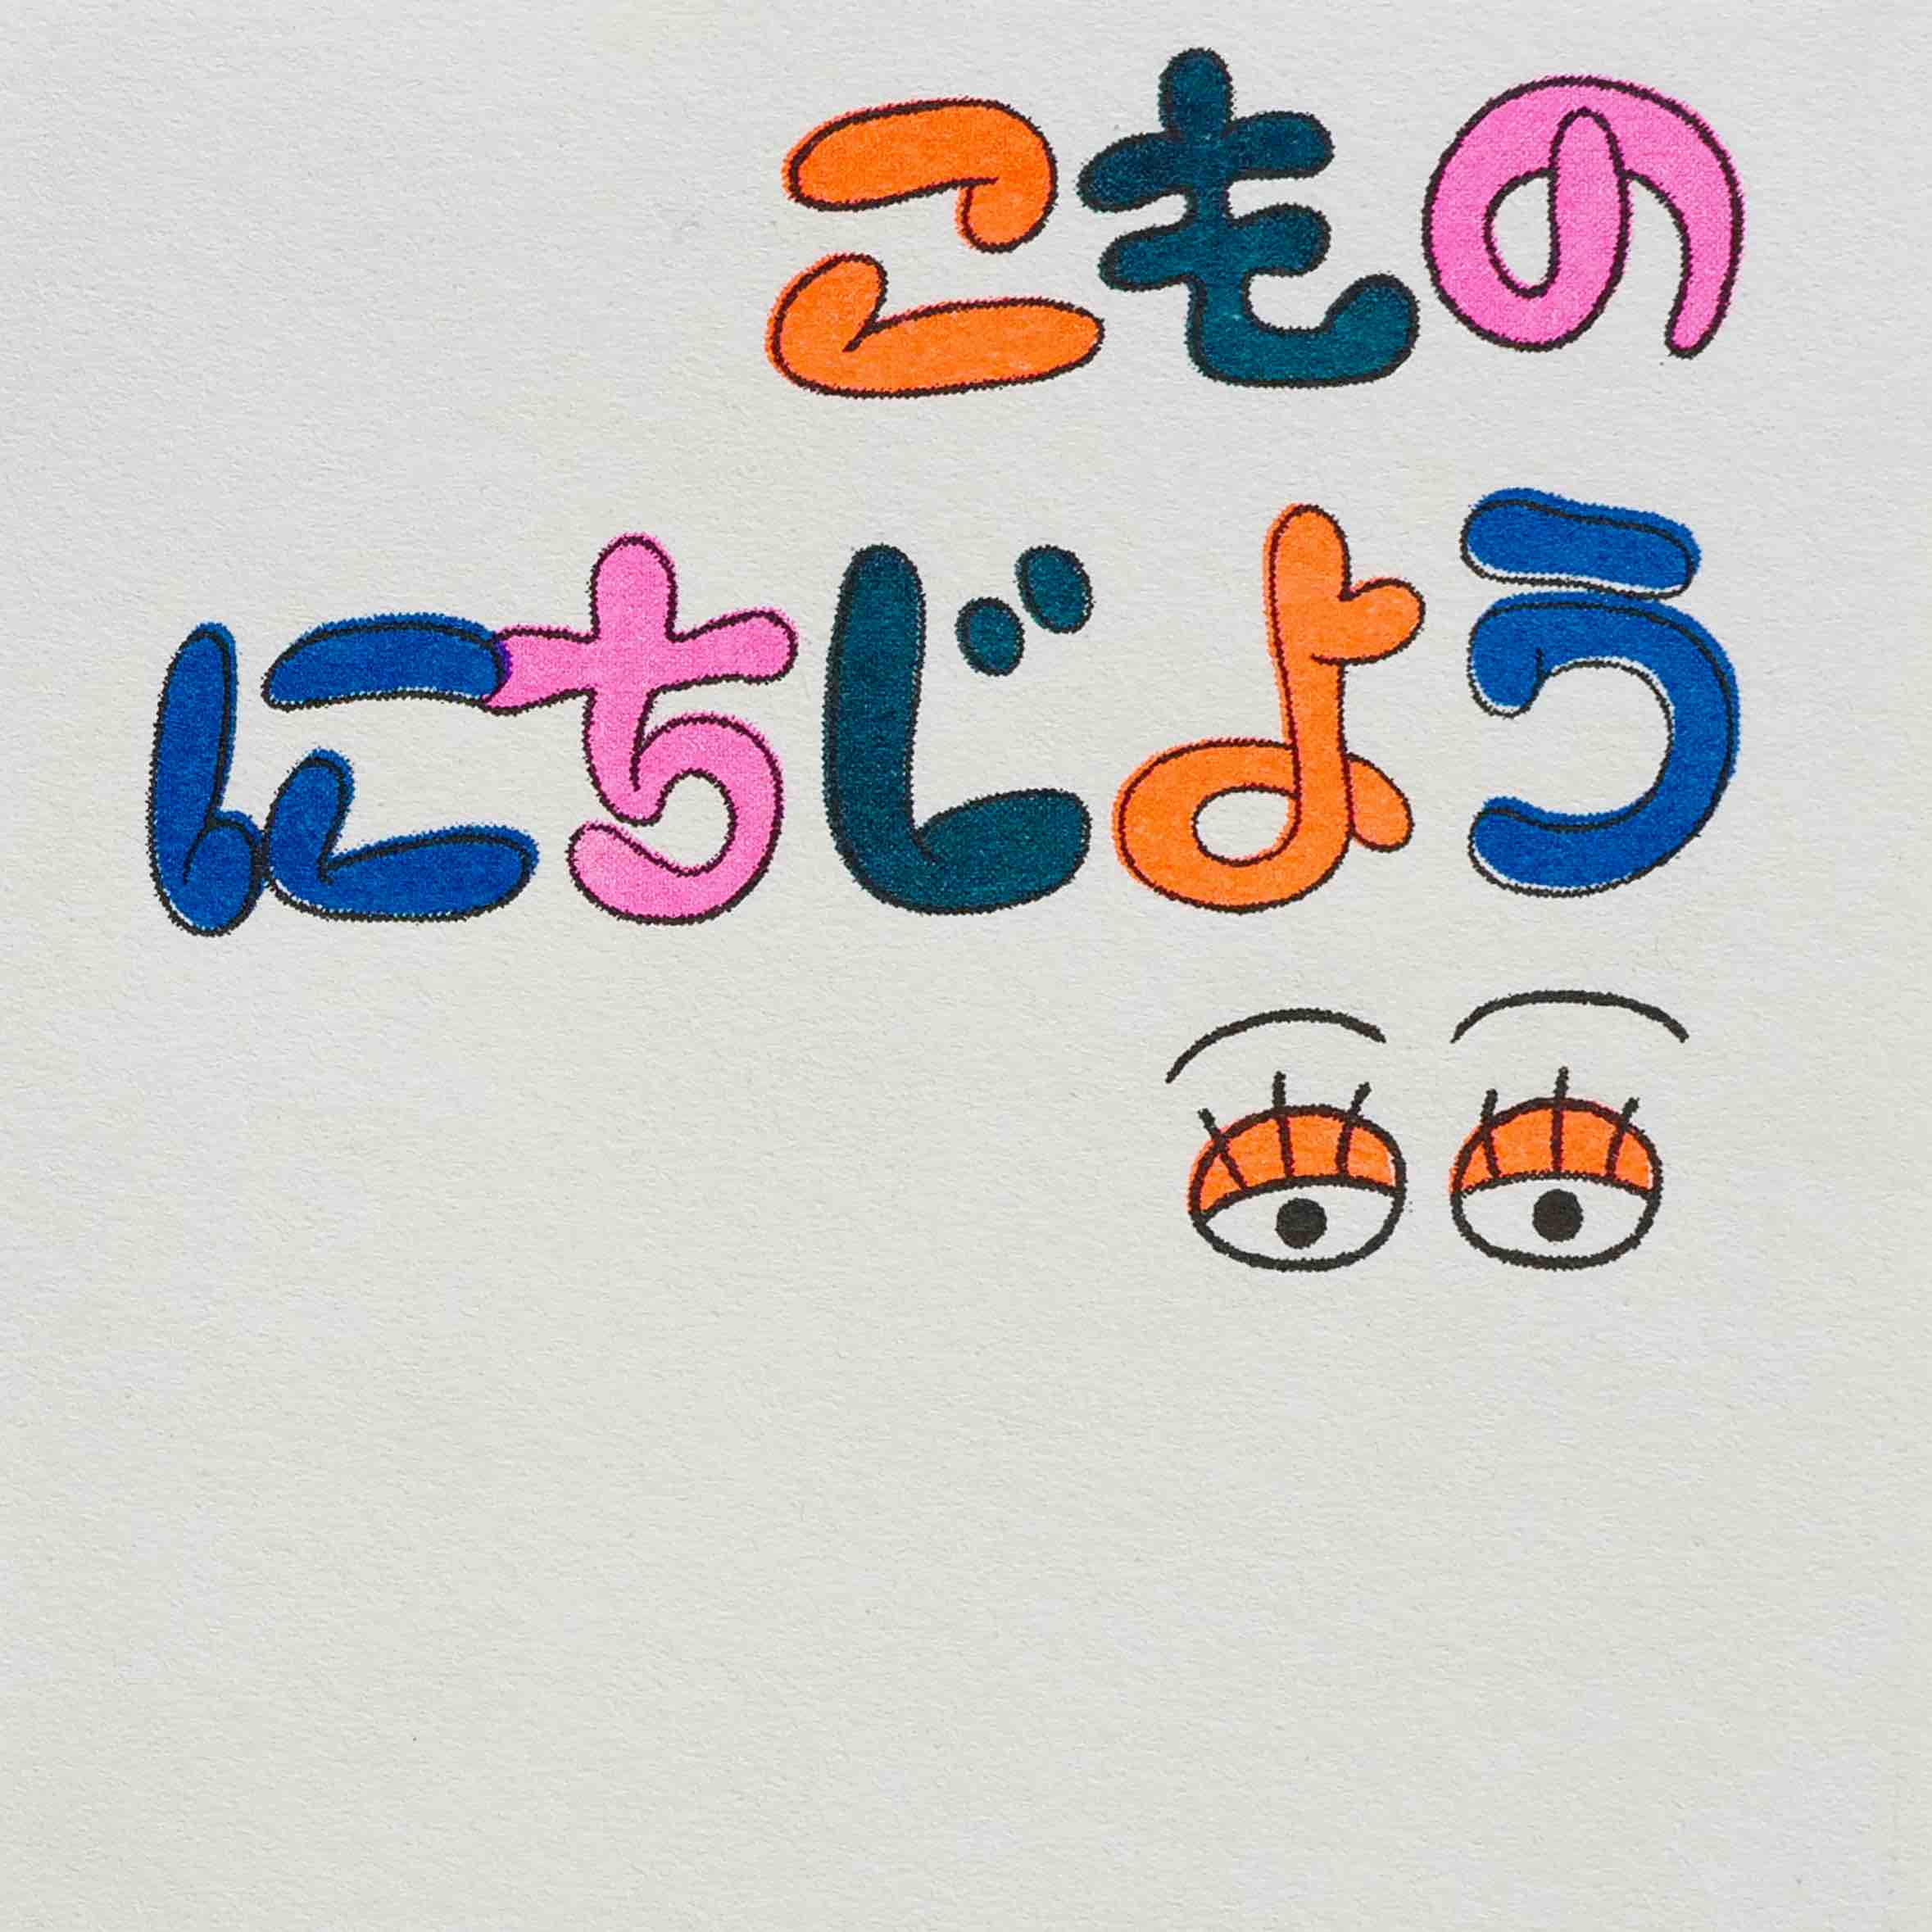 こもの
にちじよう